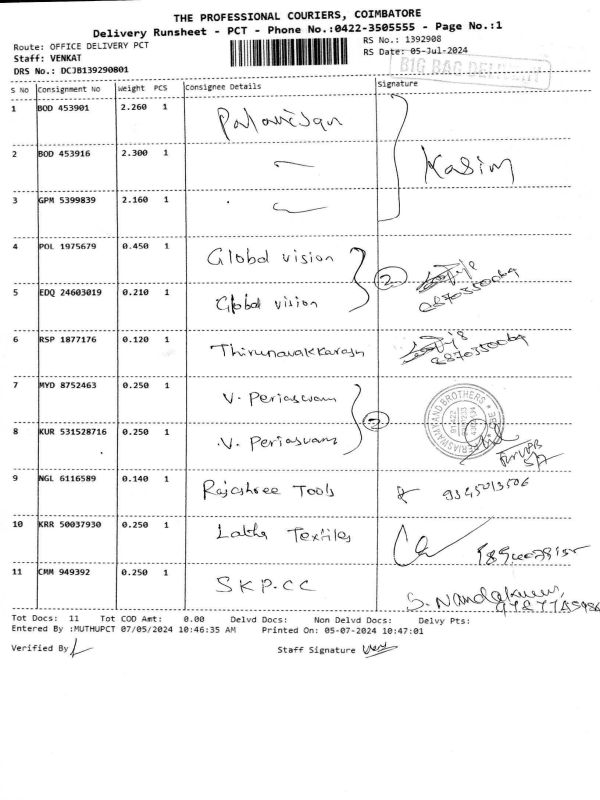 THE PROFESSIONAL COURIERS, COIMBATORE
Delivery Runsheet - PCT - Phone No.:0422-3505555 - Page No.:1
Route: OFFICE DELIVERY PCT
RS No.: 1392908
Staff: VENKAT
RS Date: 05-Jul-2024
DRS No.: DCJB139290801
BIG BAG DELIVERY
S No Consignment No Weight PCS Consignee Details Signature
1 BOD 453901 2.260 1 Palanisan
2 BOD 453916 2.300 1 Kasim
3 GPM 5399839 2.160 1
4 POL 1975679 0.450 1 Global vision 2
5 EDQ 24603019 0.210 1 Global vision 8870350069
6 RSP 1877176 0.120 1 Thirunavakkarasu 8870350069
7 MYD 8752463 0.250 1 V. Periaswam 2
8 KUR 531528716 0.250 1 V. Periaswam
9 NGL 6116589 0.140 1 Rajashree Tools 9345013506
10 KRR 50037930 0.250 1 Latha Textiles
11 CMM 949392 0.250 1 SKP.CC S. Nandakumar
Tot Docs: 11 Tot COD Amt: 0.00 Delvd Docs: Non Delvd Docs: Delvy Pts:
Entered By :MUTHUPCT 07/05/2024 10:46:35 AM Printed On: 05-07-2024 10:47:01
Verified By
Staff Signature